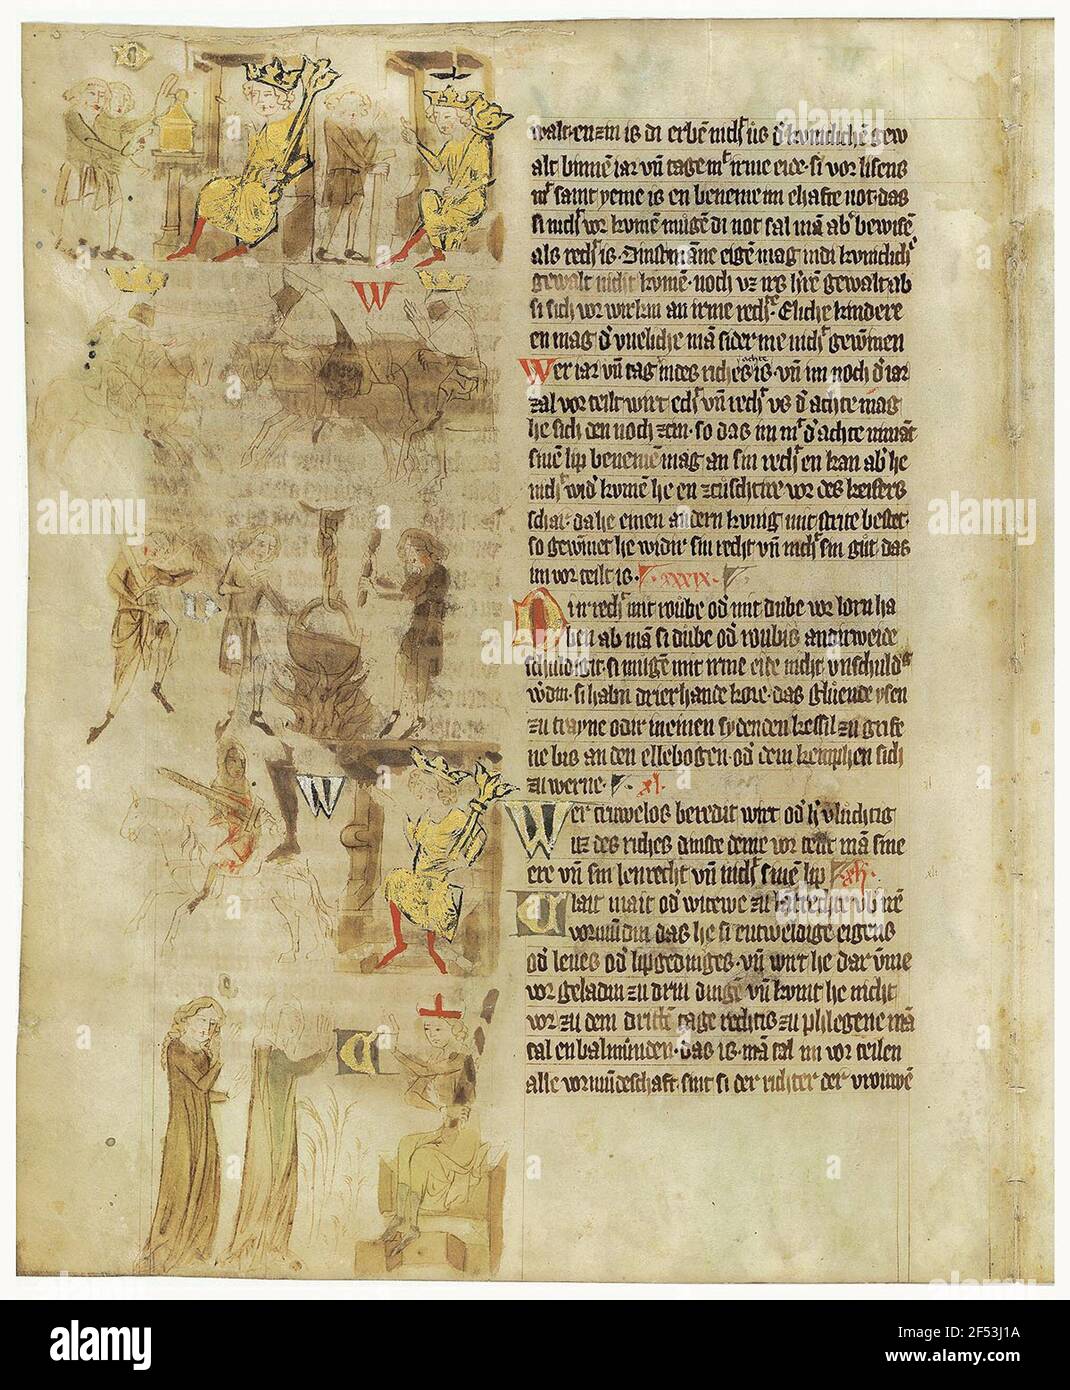 walt·en zin is di erbe nicht us d kuniclichē gew
alt binnē iar vn̄ tage mᵗ irme eide·si vor lisens
si nicht vor kumē mugē di not sal mā abᵉ bewisē
als recht is· Dinstmāne eigē mag in di kuniclichᵉ
gewalt nicht kumē·noch vz
si sich vor wirkin an irme rechte· Eliche kindere
en mag d vneliche mā sider me nicht gewīnen
Wer iar vn̄ tag in des riches achte is·vn̄ im noch d iar
zal vor teilt wirt echt vn̄ recht us d achte mag
he sich den noch zein·so das im mᵗ d achte nimāt
sinē lip benemē mag an sin recht en kan abᵉ he
nicht widᵉ kumē he en zcuschtire vor des keisers
schar·da he einen andern kunig mit strite beste·
so gewinet he widir sin recht vn̄ nicht sin gut das
im vor teilt is· xxxix·
D in recht mit roube odᵉ mit dube vor lorn ha
ben ab mā si dube odᵉ roubis anderweide
schuldigit·si mugē mit irme eide nicht vnschuldᵍ
wdin·si habin drier hande kore·das gluende ysen
zu trayne odir in einen sydenden kessil zu grife
ne bis an den ellebogen·odᵉ dem kemphen sich
zu werne· xl·
Wer truwelos beredit wirt odᵉ h'vluchtig
uz des riches dinste deme vor teilt mā sine
ere vn̄ sin lenrecht vn̄ nicht sinē lip xli·
Clait mait odᵉ witewe zu lantrechte ub' irē
vormūdin das he si entweldige eigens
odᵉ lenes odᵉ lipgedinges·vn̄ wirt he dar ūme
vor geladin zu drin dingē vn̄ kumt he nicht
vor zu dem drittē tage rechtis zu phlegene mā
sal en balmunden·das is·mā sal im vor teilen
alle vormūdeschaft·sint si der richter der vrouwē
D
W
D
W
C
alamy
Image ID: 2F53J1A
www.alamy.com